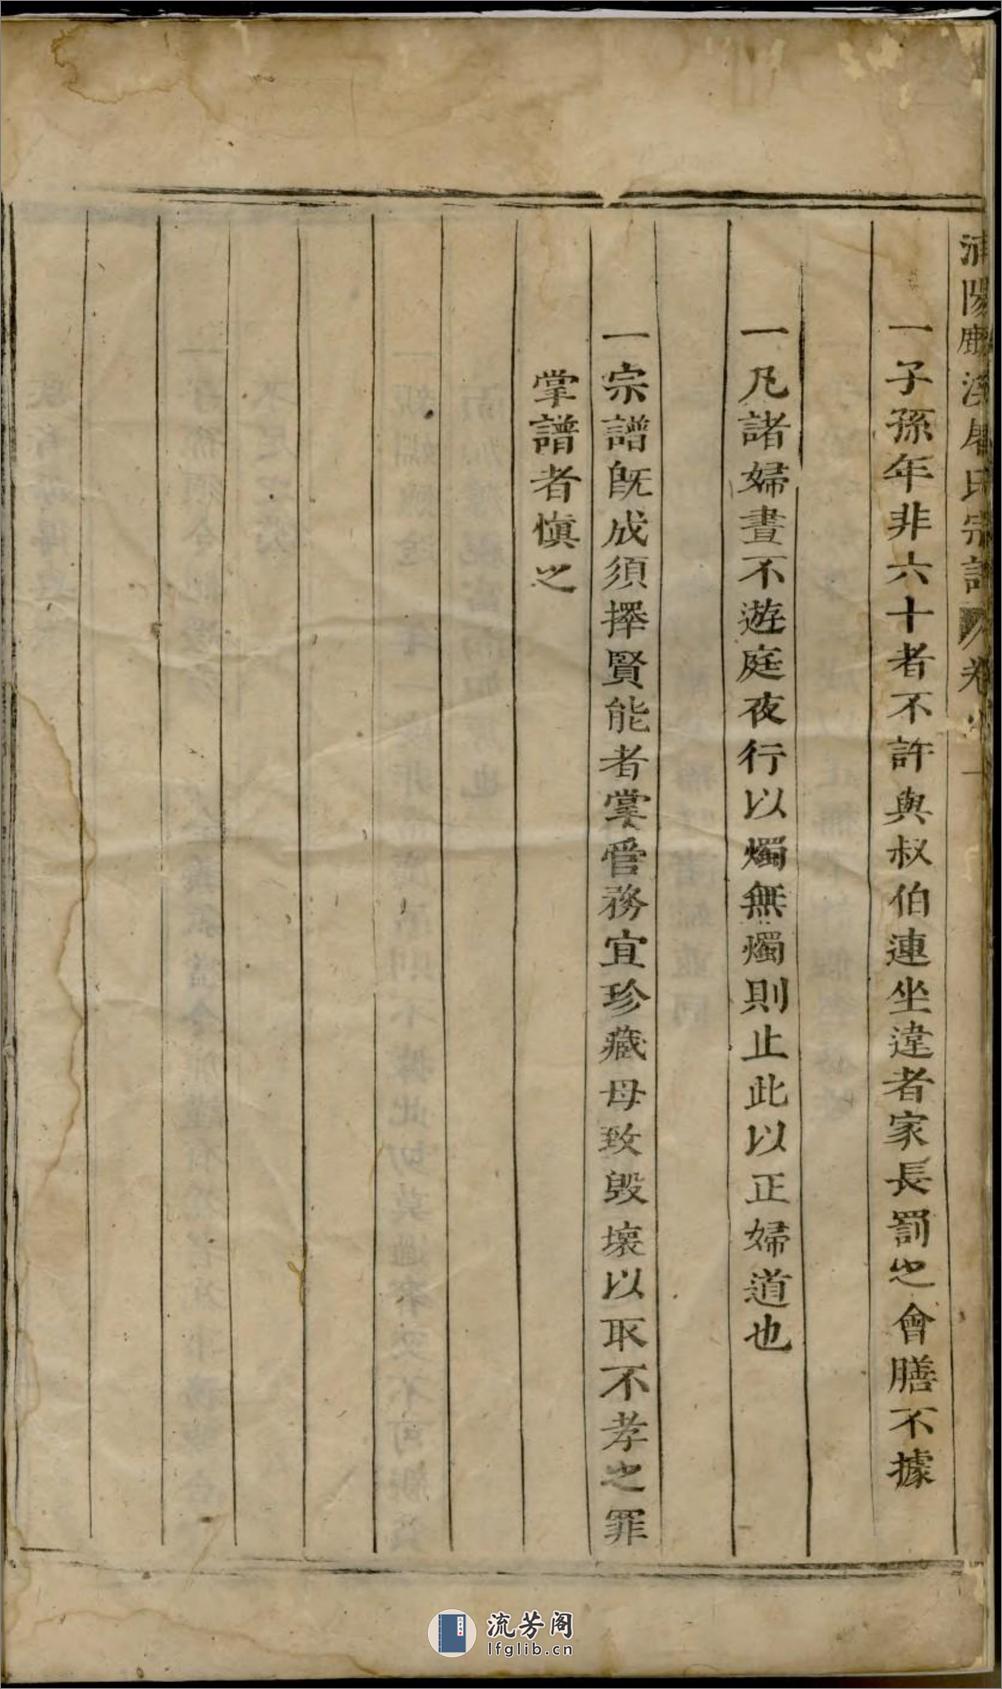 浦陽鹿溪屠氏宗譜 卷
一子孫年非六十者不許與叔伯連坐違者家長罰之會膳不據
一凡諸婦晝不遊庭夜行以燭無燭則止此以正婦道也
一宗譜旣成須擇賢能者掌管務宜珍藏毋致毀壞以取不孝之罪
掌譜者愼之
流芳阁
lfglib.cn